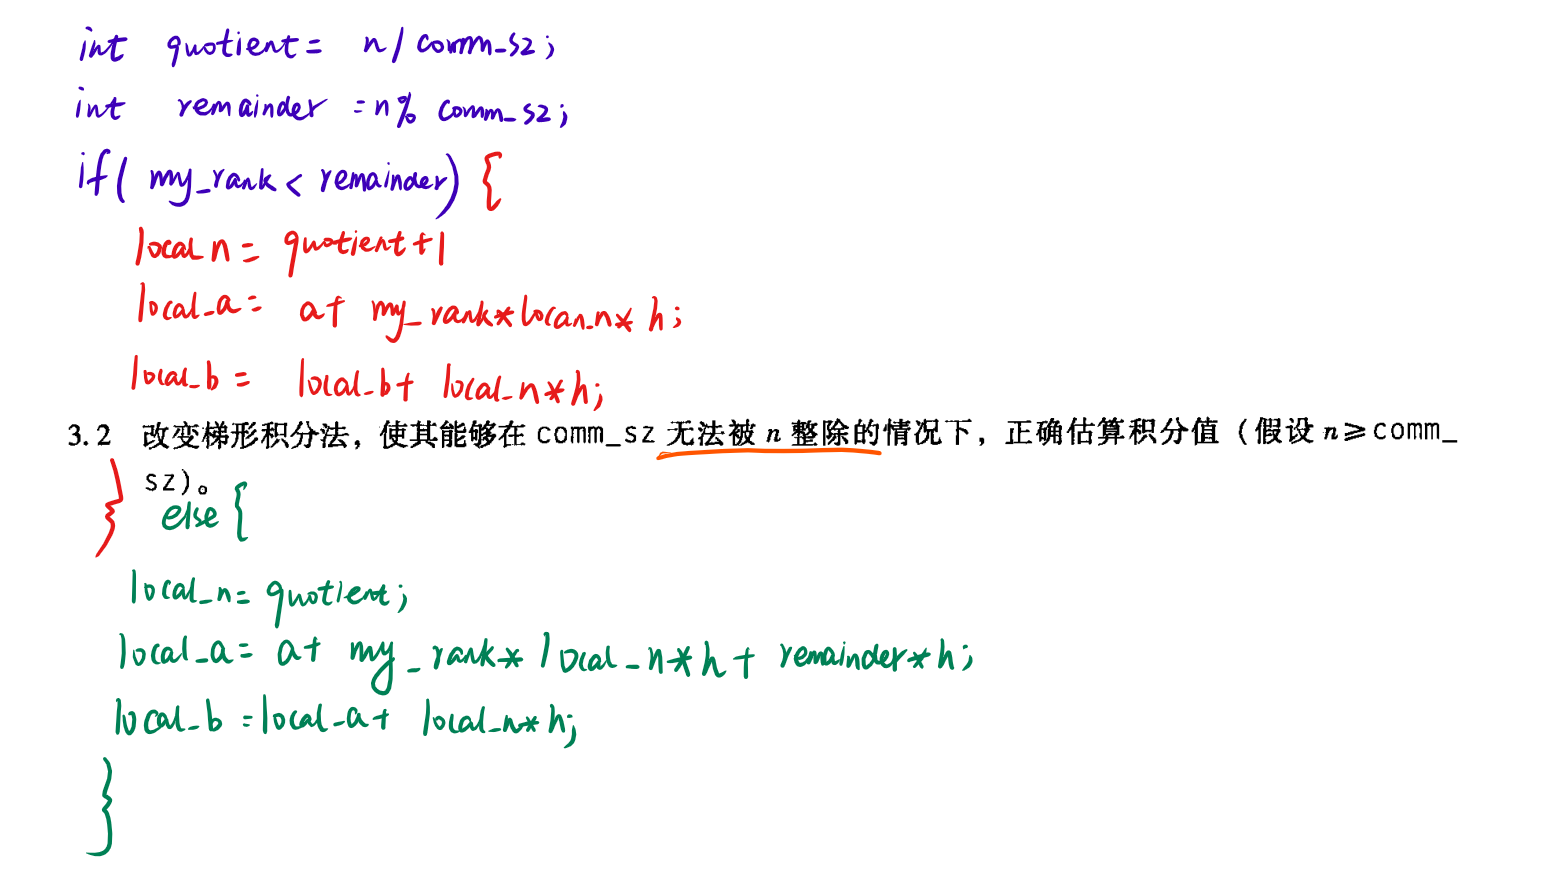 int quotient = n / comm_sz;
int remainder = n % comm_sz;
if( my_rank < remainder) {
local n = quotient+1
local_a = a+ my_rank*locan_n* h;
local_b = local_b+ local_n*h;
3.2 改变梯形积分法，使其能够在 comm_sz 无法被 n 整除的情况下，正确估算积分值（假设 n≥comm_
sz）。
} else {
local_n= quotient;
local_a= a+ my_rank* local_n*h+ remainder*h;
local_b =local_a+ local_n*h;
}